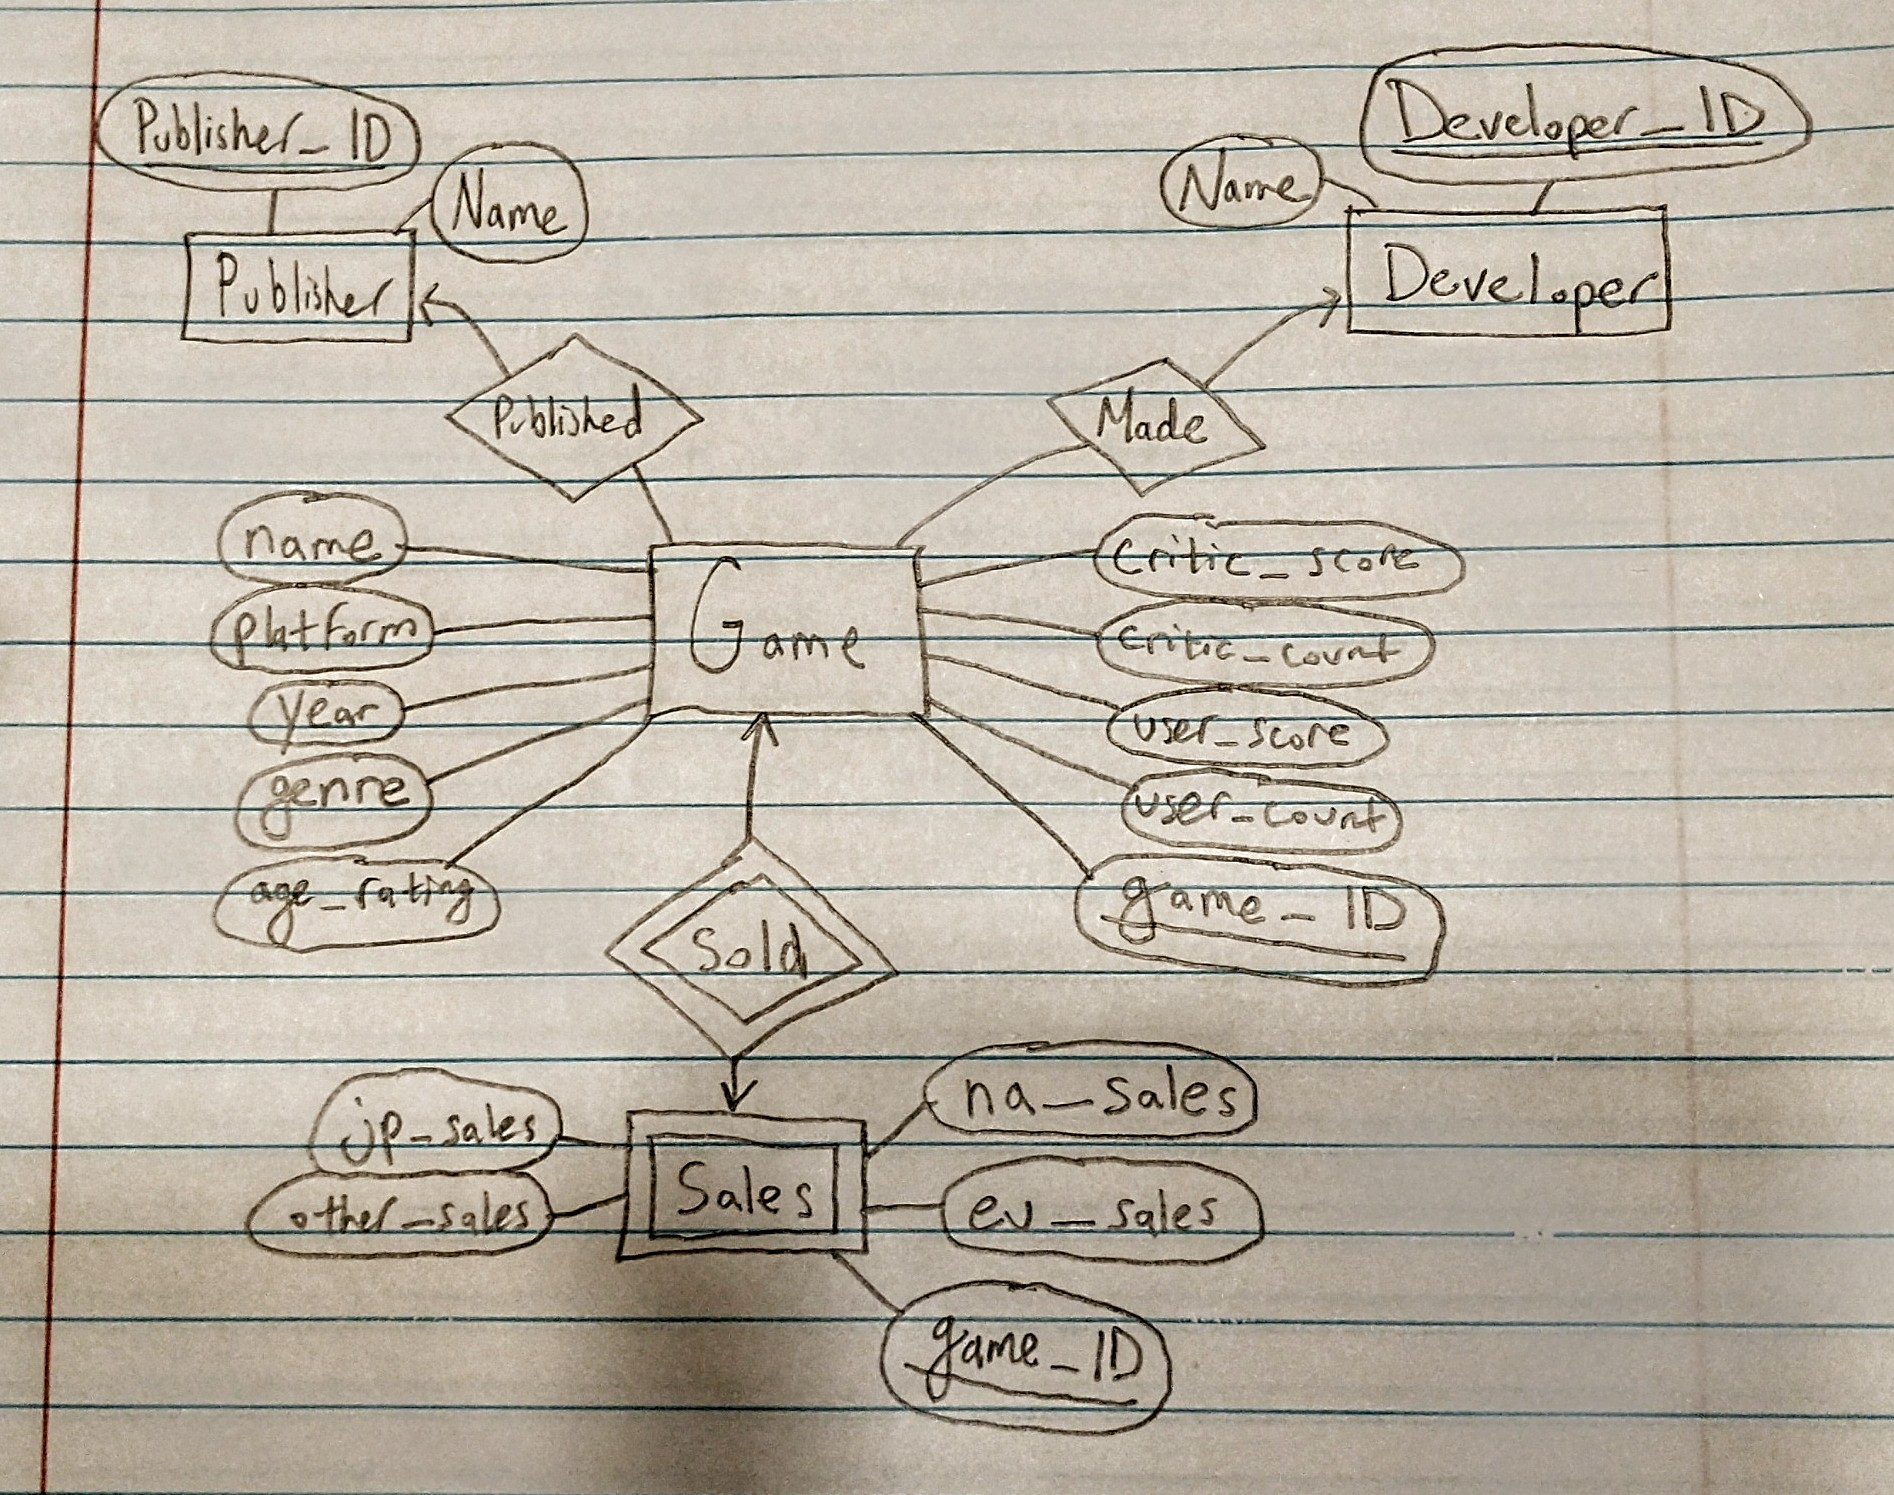 Publisher_ID
Name
Publisher
Developer_ID
Name
Developer
Published
Made
name
platform
year
genre
age_rating
Game
critic_score
critic_count
user_score
user_count
game_ID
Sold
jp_sales
other_sales
Sales
na_sales
eu_sales
game_ID